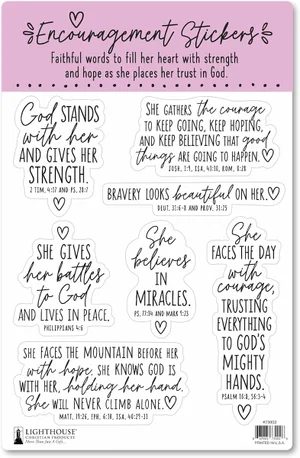 Encouragement Stickers
Faithful words to fill her heart with strength
and hope as she places her trust in God.
God STANDS
with her
AND GIVES HER
STRENGTH.
2 TIM. 4:17 AND PS. 28:7
SHE GATHERS the courage
TO KEEP GOING, KEEP HOPING,
AND KEEP BELIEVING THAT good
things ARE GOING TO HAPPEN.
JOSH. 1:9, ISA. 43:10, ROM. 8:28
BRAVERY LOOKS beautiful ON HER.
DEUT. 31:6-8 AND PROV. 31:25
SHE GIVES
her battles
to God
AND LIVES IN PEACE.
PHILIPPIANS 4:6
She
believes
IN
MIRACLES.
PS. 77:14 AND MARK 9:23
She
FACES THE DAY
with
courage,
TRUSTING
EVERYTHING
TO GOD'S
MIGHTY
HANDS.
PSALM 16:8, 56:3-4
SHE FACES THE MOUNTAIN BEFORE HER
with hope. SHE KNOWS GOD IS
WITH HER, holding her hand.
She WILL NEVER CLIMB ALONE.
MATT. 19:26, EPH. 6:10, ISA. 40:29-31
LIGHTHOUSE
CHRISTIAN PRODUCTS
More Than Just A Gift...
PRINTED IN U.S.A.